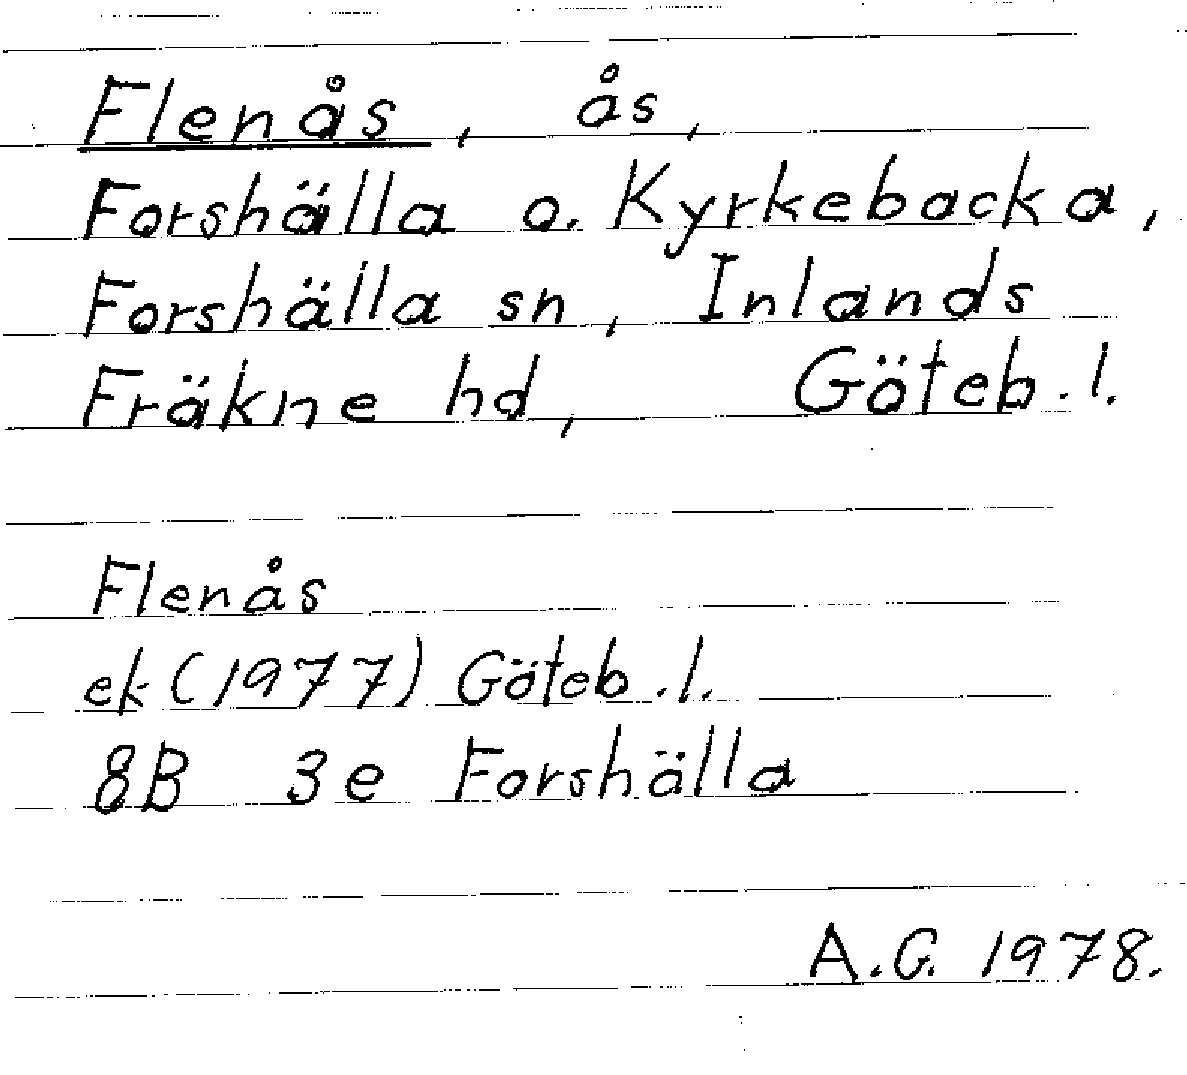 Flenås, ås,
Forshälla o. Kyrkebacka,
Forshälla sn, Inlands
Fräkne hd, Göteb.l.
Flenås
ek (1977) Göteb.l.
8B 3e Forshälla
A.G. 1978.